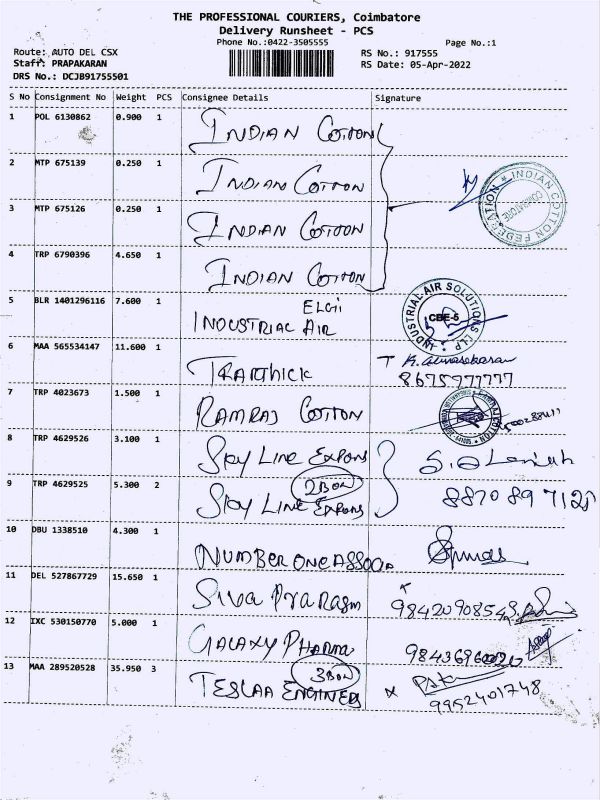 THE PROFESSIONAL COURIERS, Coimbatore
Delivery Runsheet - PCS
Phone No.:0422-3505555
Page No.:1
Route: AUTO DEL CSX
RS No.: 917555
Staff: PRAPAKARAN
RS Date: 05-Apr-2022
DRS No.: DCJB91755501
S No Consignment No Weight PCS Consignee Details Signature
1 POL 6130862 0.900 1 INDIAN COTTON
2 MTP 675139 0.250 1 INDIAN COTTON
INDIAN COTTON FEDERATION COIMBATORE
3 MTP 675126 0.250 1 INDIAN COTTON
4 TRP 6790396 4.650 1 INDIAN COTTON
5 BLR 1401296116 7.600 1 ELGI
INDUSTRIAL AIR
INDUSTRIAL AIR SOLUTIONS LLP CBE-5
6 MAA 565534147 11.600 1 TKARTHICK
8675977777
7 TRP 4023673 1.500 1 RAMRAJ COTTON
8 TRP 4629526 3.100 1 SKY LINE EXPORTS
9 TRP 4629525 5.300 2 2BOX
SKY LINE EXPORTS
10 DBU 1338510 4.300 1 NUMBER ONE ASSOCIA
11 DEL 527867729 15.650 1 SIVA PRAKASH
9842090854
12 IXC 530150770 5.000 1 GALAXY PHARMA
13 MAA 289520528 35.950 3 3BOX
TESLAA ENGINEERS
9952401748